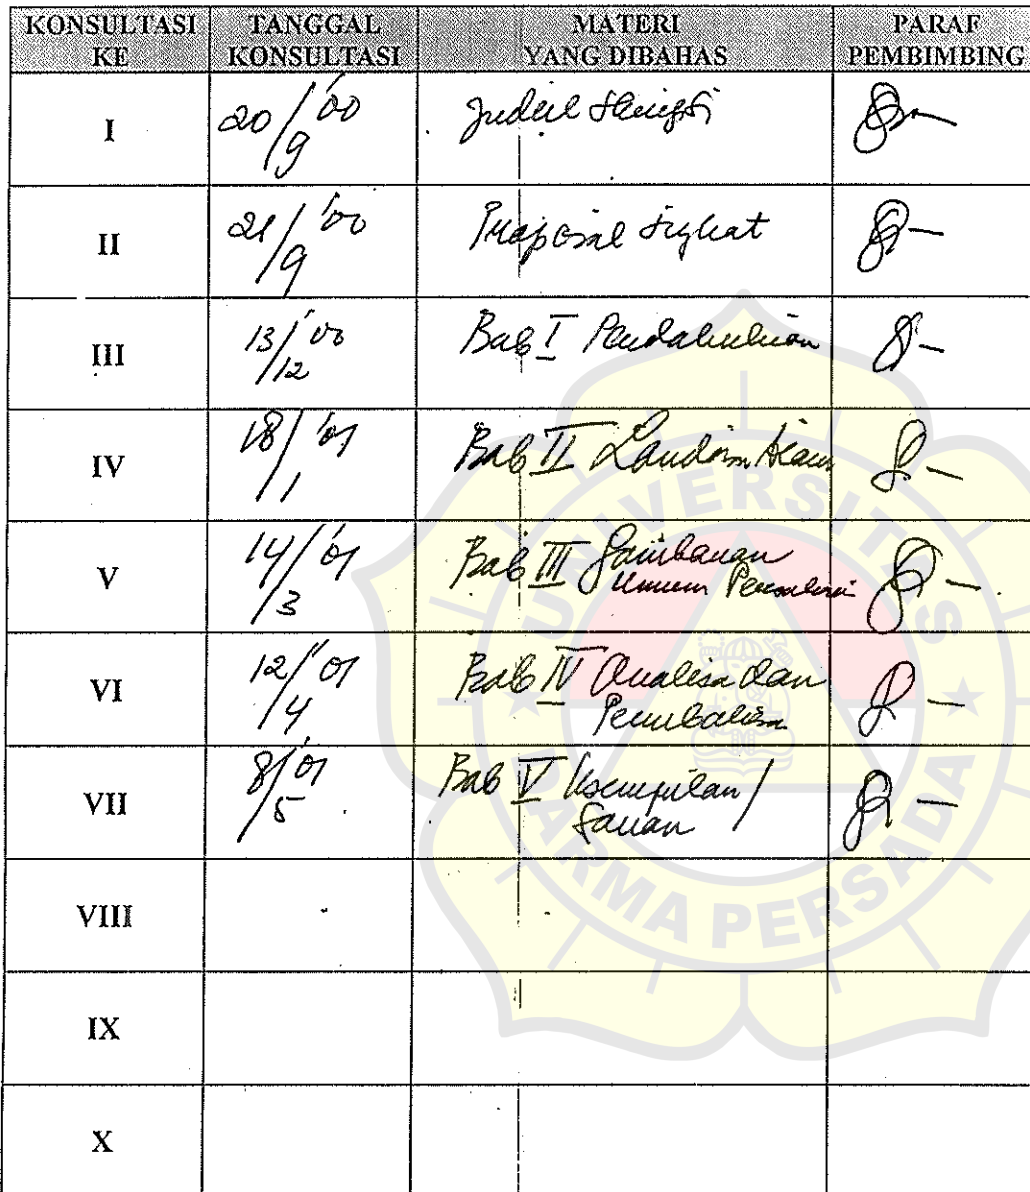 KONSULTASI KE
TANGGAL KONSULTASI
MATERI YANG DIBAHAS
PARAF PEMBIMBING
I
20/9 '00
Judul Skripsi
II
21/9 '00
Proposal Singkat
III
13/12 '00
Bab I Pendahuluan
IV
18/1 '01
Bab II Landasan
V
14/3 '01
Bab III Gambaran
Umum Perusahaan
VI
12/4 '01
Bab IV Analisa dan
Pembahasan
VII
8/5 '01
Bab V Kesimpulan /
Saran
VIII
IX
X
UNIVERSITAS
DARMA PERSADA